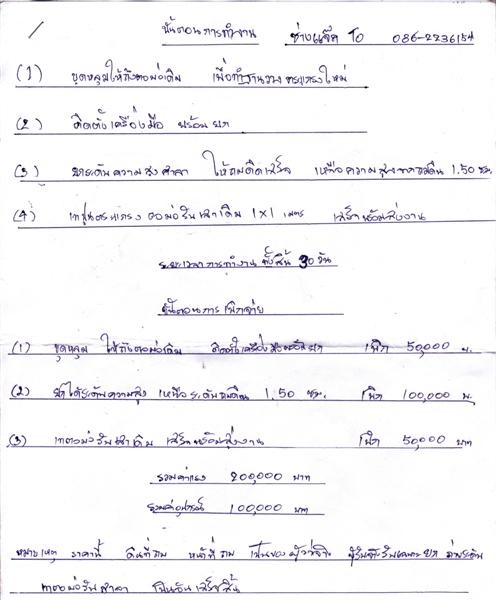 ขั้นตอนการทำงาน ช่างแจ็ค To 086-2236154
(1) ขุดหลุมให้ถึงตอม่อเดิม เพื่อทำฐานวางคานแรงใหม่
(2) ติดตั้งเครื่องมือ พร้อมยก
(3) ยกระดับความสูงศาลา ให้ถมดินเสร็จ เหนือความสูงจากถมดิน 1.50 ซม.
(4) เท ตอม่อรับเสาเดิม 1x1 เมตร เสร็จพร้อมส่งงาน
ระยะเวลาการทำงาน ทั้งสิ้น 30 วัน
ขั้นตอนการเบิกจ่าย
(1) ขุดหลุม ให้ถึงตอม่อเดิม ติดตั้งเครื่องมือพร้อมยก เบิก 50,000 บ.
(2) ยกได้ระดับความสูง เหนือระดับถมดิน 1.50 ซม. เบิก 100,000 บ.
(3) เทตอม่อรับเสาเดิม เสร็จพร้อมส่งงาน เบิก 50,000 บาท
รวมค่าแรง 200,000 บาท
รวมค่าอุปกรณ์ 100,000 บาท
หมายเหตุ ราคานี้ ดินที่ถม หน้าที่ถม เป็นของผู้ว่าจ้าง ผู้รับจ้างรับเฉพาะยก
เทตอม่อรับศาลา เป็นอันเสร็จสิ้น